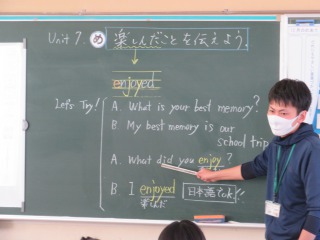 Unit 7. め 楽しんだことを伝えよう.
enjoyed
Let's Try!
A. What is your best memory?
B. My best memory is our
school trip
A. What did you enjoy ?
B. I enjoyed 日本語もok!!
楽しんだ